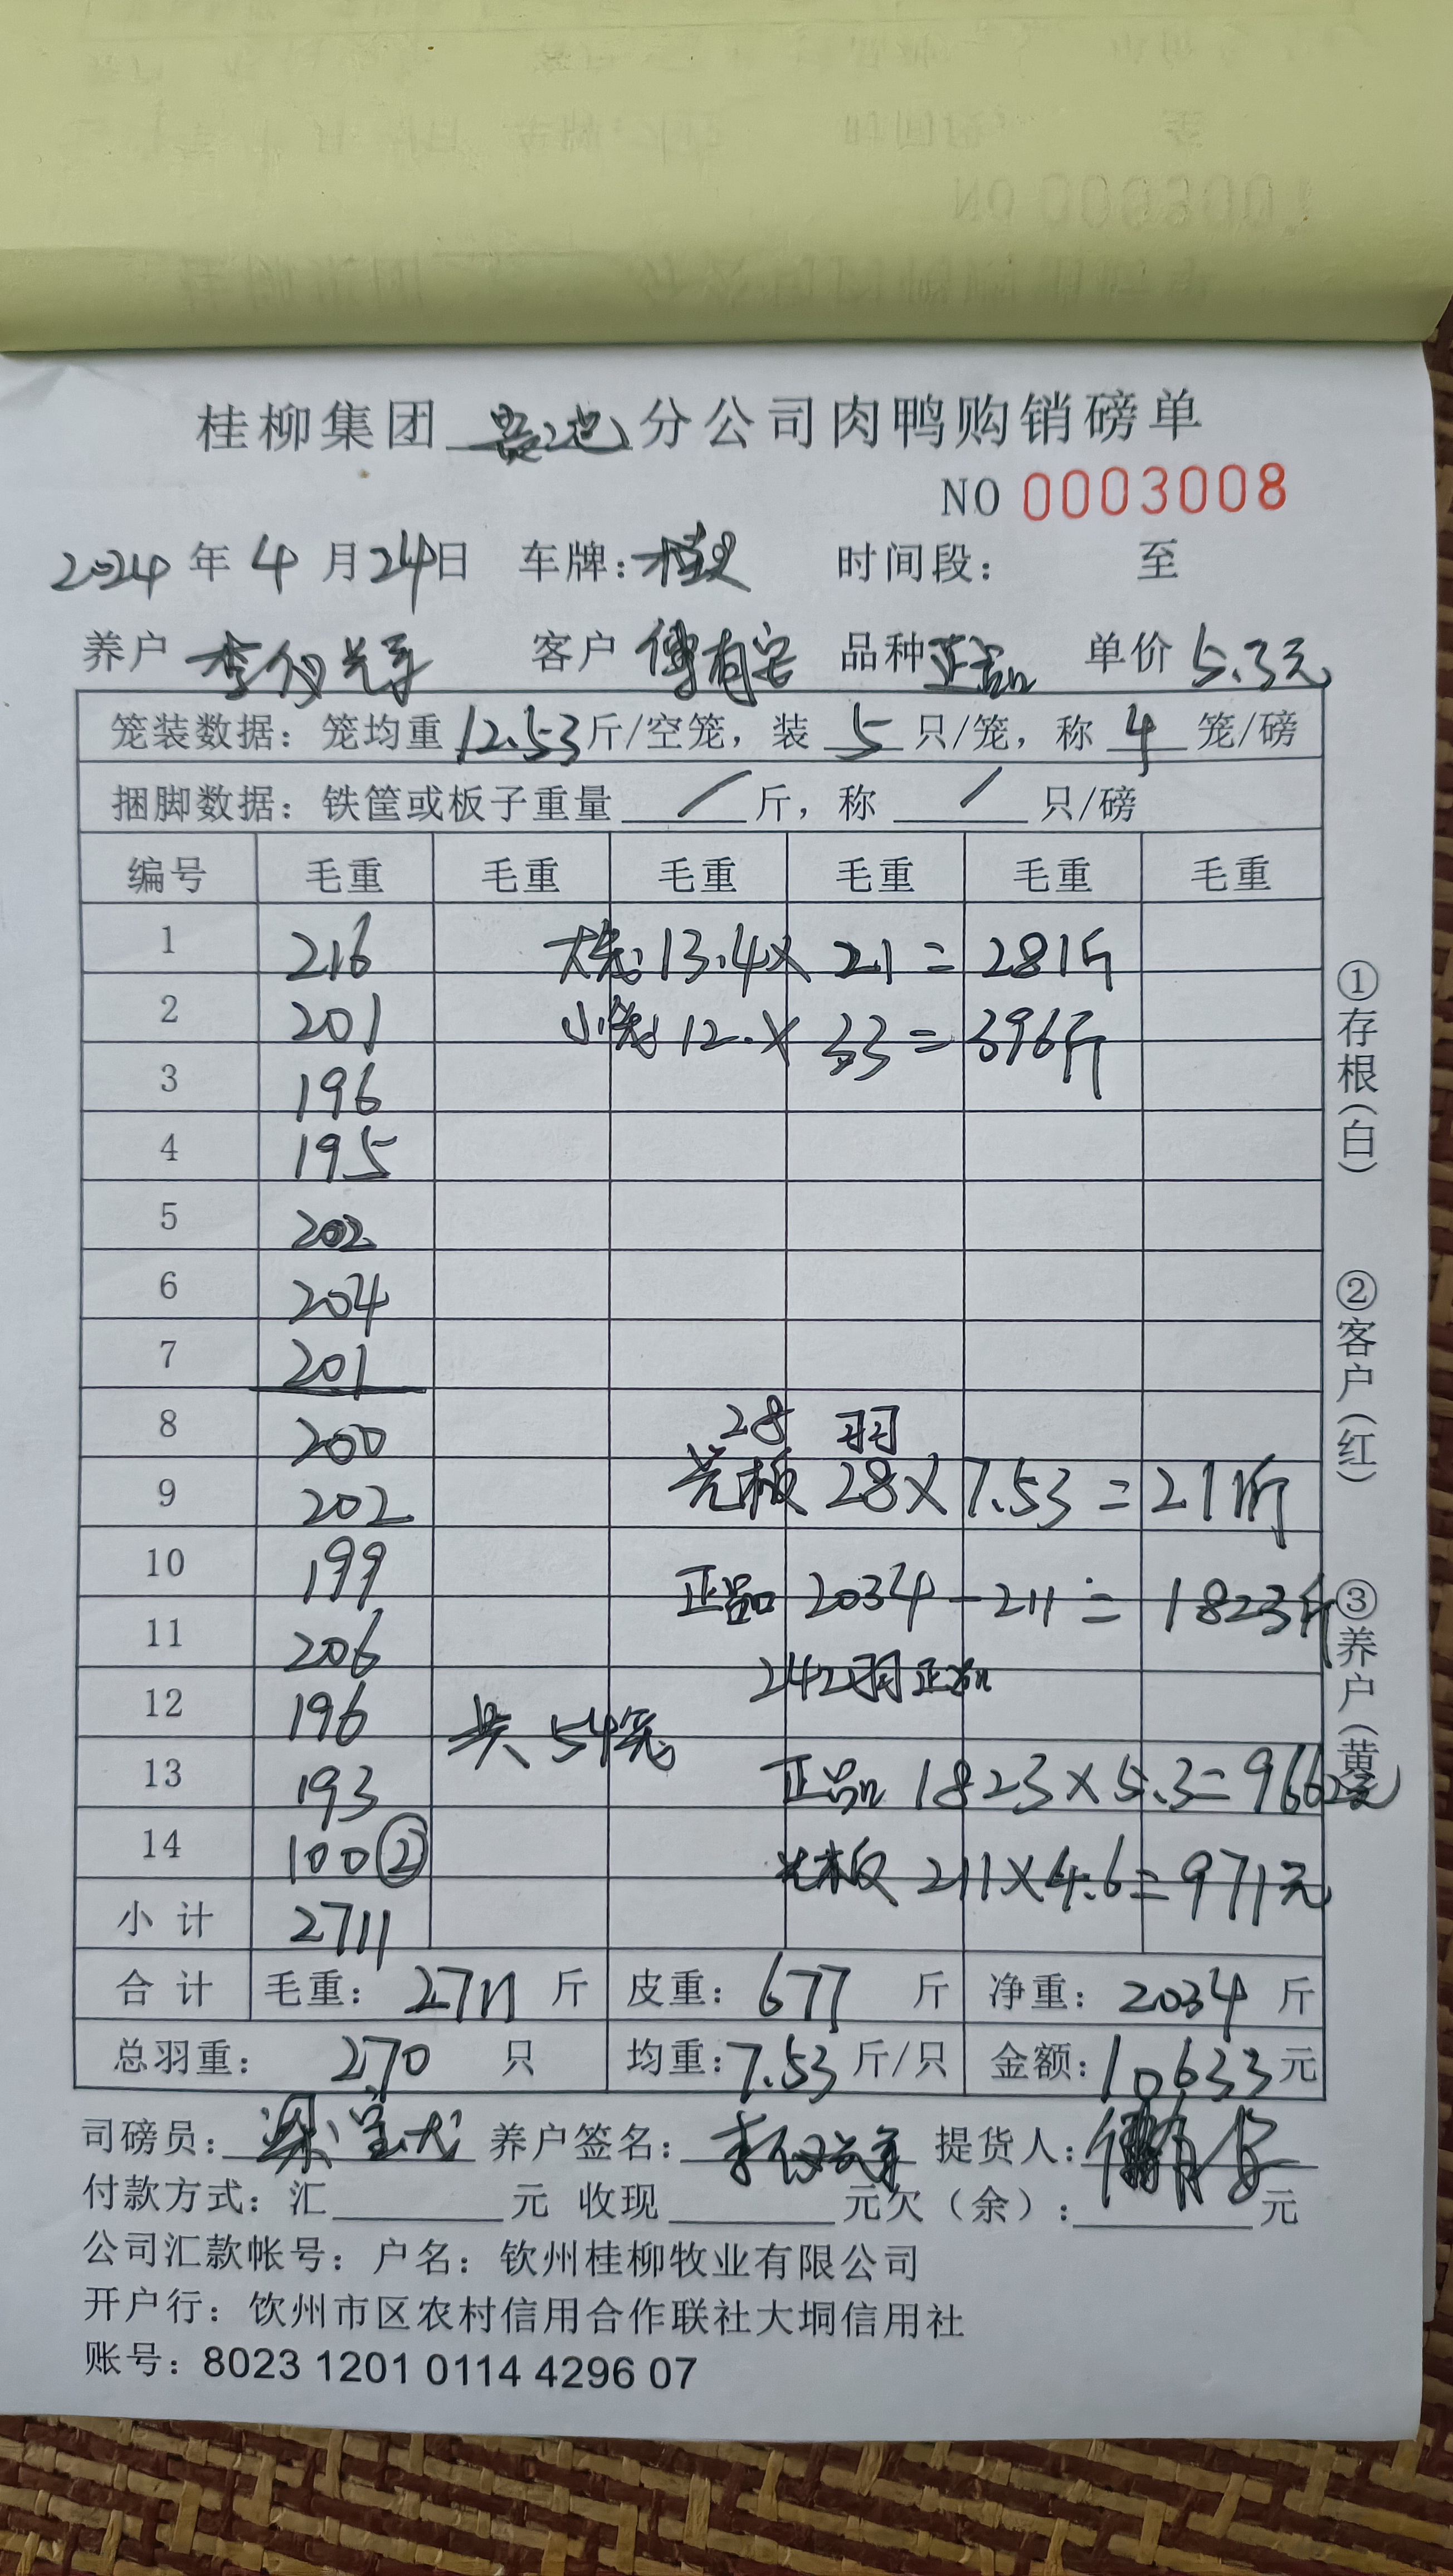 桂柳集团 分公司肉鸭购销磅单
NO 0003008
2024 年 4 月 24 日 车牌: 时间段: 至
养户 李 客户 傅有安 品种 正品 单价 5.3元
笼装数据: 笼均重 12.53 斤/空笼, 装 5 只/笼, 称 4 笼/磅
捆脚数据: 铁筐或板子重量 / 斤, 称 / 只/磅
编号 毛重 毛重 毛重 毛重 毛重 毛重
1 216 大笼: 13.4 × 21 = 281斤
2 201 小笼 12. × 33 = 396斤
3 196
4 195
5 202
6 204
7 201
8 200 28 羽
9 202 光板 28 × 7.53 = 211斤
10 199 正品 2034 - 211 = 1823斤
11 206
12 196 共 54笼 242羽正品
13 193 正品 1823 × 5.3 = 9662元
14 100 ② 光板 211 × 4.6 = 971元
小计 2711
合计 毛重: 2711 斤 皮重: 677 斤 净重: 2034 斤
总羽重: 270 只 均重: 7.53 斤/只 金额: 10633 元
司磅员: 梁 养户签名: 李 提货人: 傅有安
付款方式: 汇 元 收现 元欠(余): 元
公司汇款帐号: 户名: 钦州桂柳牧业有限公司
开户行: 钦州市区农村信用合作联社大垌信用社
账号: 8023 1201 0114 4296 07
①存根(白)
②客户(红)
③养户(黄)